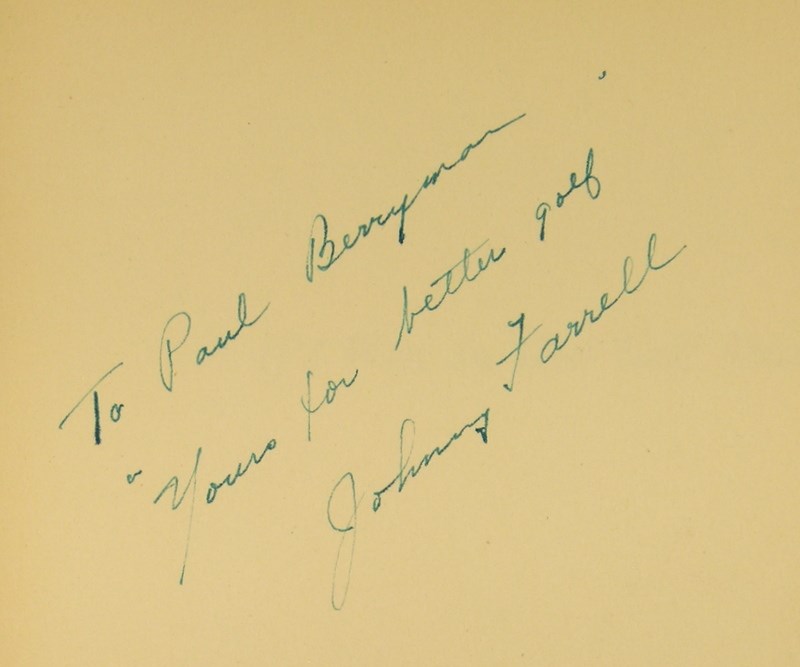 To Paul Berryman
"Yours for better golf
Johnny Farrell